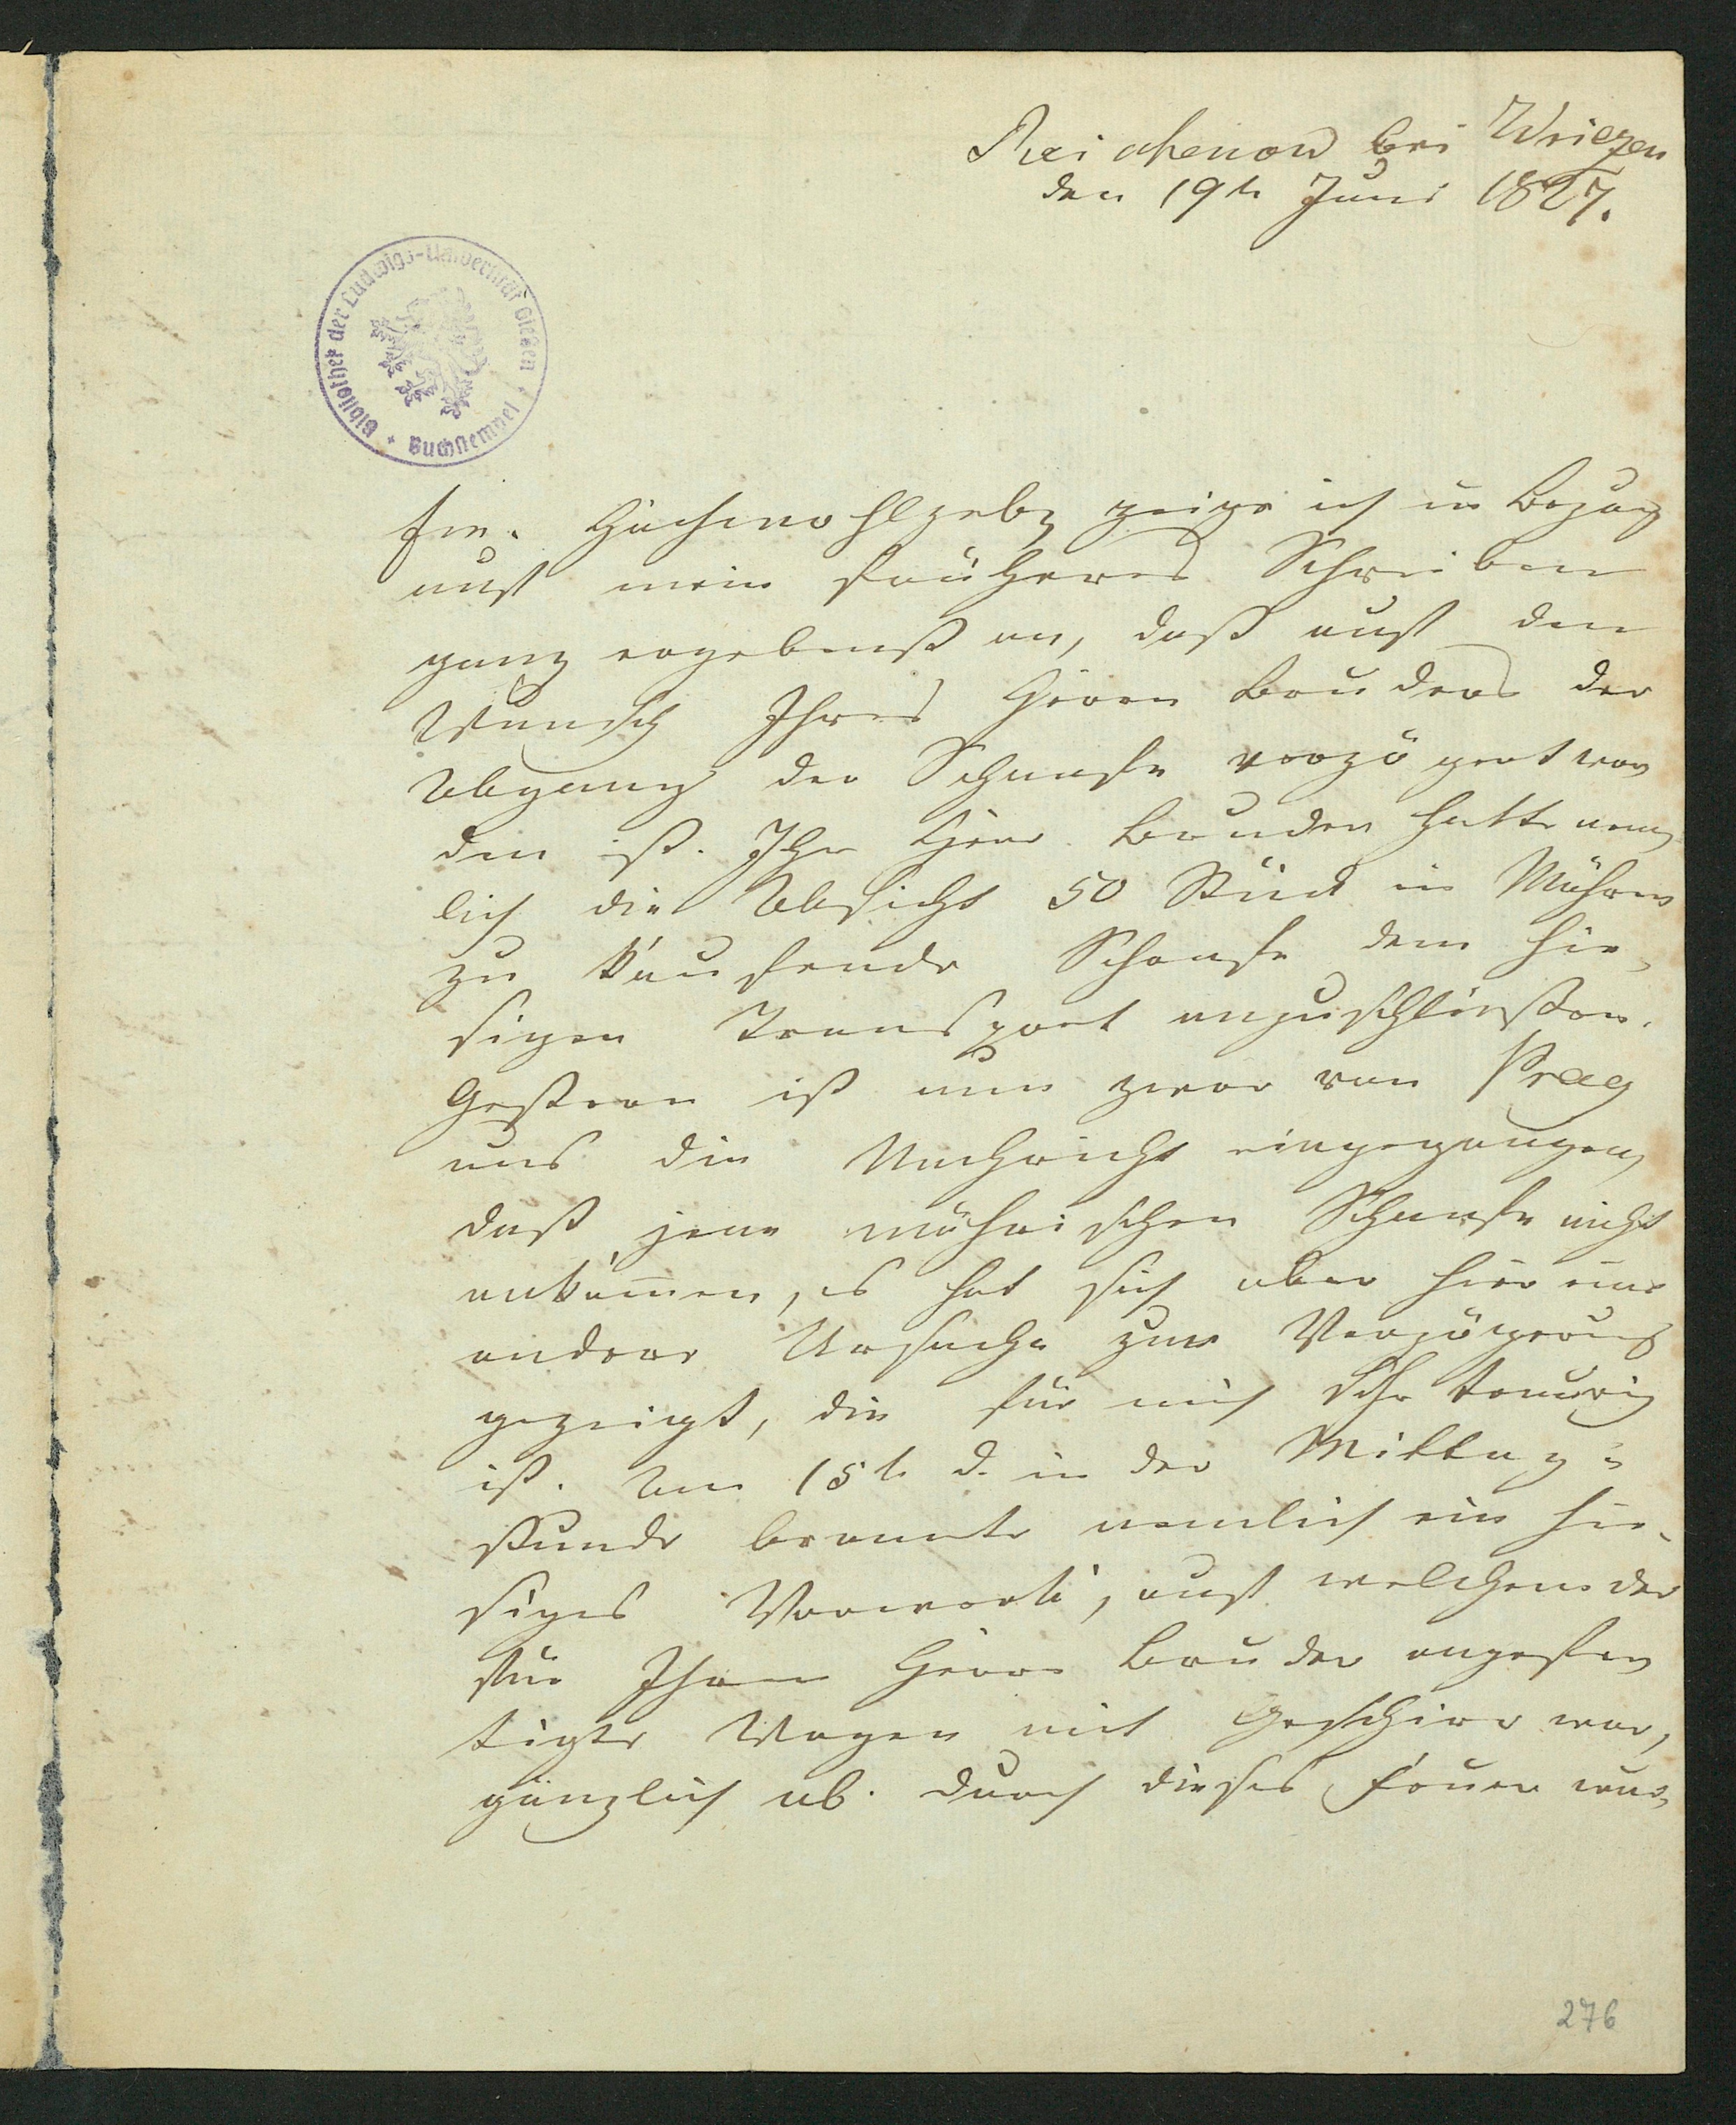 Reichenow bei Wriezen
den 19t. Juni 1827.
Bibliothek der Ludwigs-Universität Gießen
Buchstempel
Ew. Hochwohlgeb zeige ich in Bezug
auf mein früheres Schreiben
ganz ergebenst an, daß auf den
Wunsch Ihres Herrn Bruders der
Abgang der Schaafe verzögert wor
den ist. Ihr Herr Bruder hatte nem
lich die Absicht 50 Stück in Mähren
zu kaufende Schaafe dem hie-
sigen Transport anzuschließen.
Gestern ist nun zwar von Prag
uns die Nachricht eingegangen,
daß jene mährischen Schaafe nicht
ankom̄en, es hat sich aber hier eine
andere Ursache zur Verzögerung
gezeigt, die für mich sehr traurig
ist. Am 15t. d. in der Mittags
stunde brannte nemlich ein hie-
siges Vorwerk, auf welchem der
für Ihren Herrn Bruder angefer
tigte Wagen mit Geschirr war,
gänzlich ab. Durch dieses Feuer wur-
276